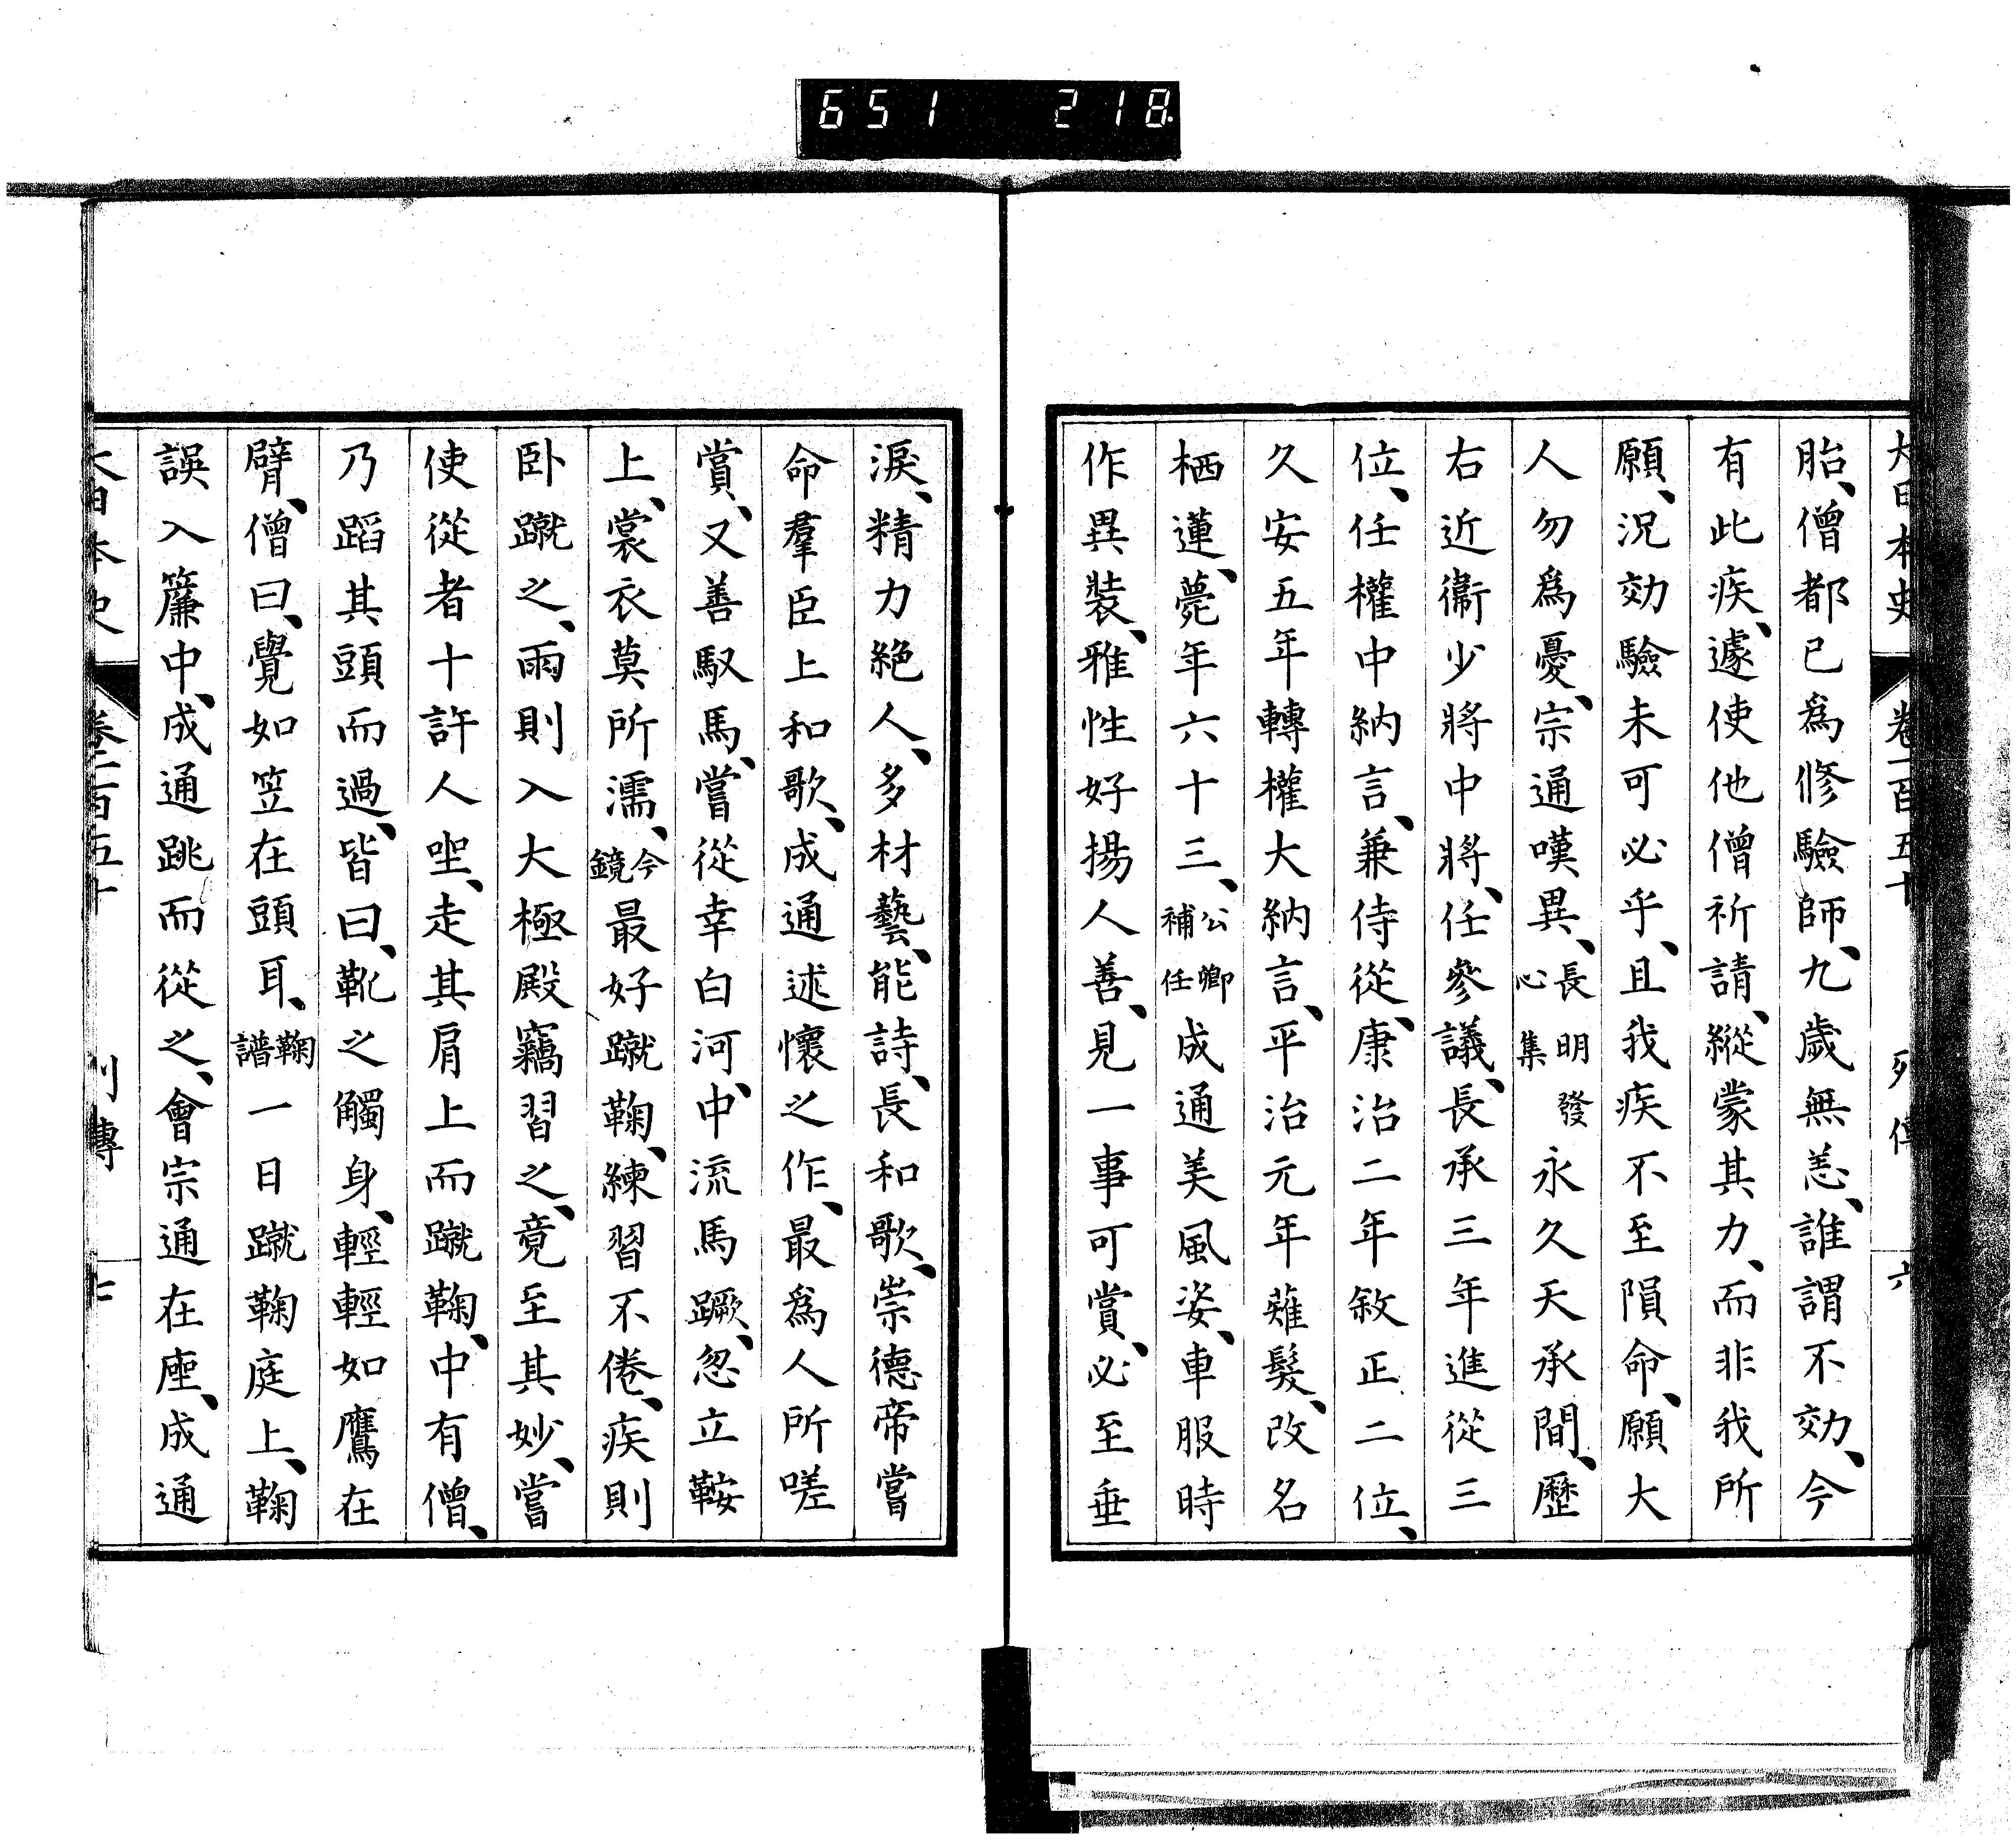 651 218.
大日本史 卷一百五十 列傳 六
胎、僧都已爲修驗師、九歲無恙、誰謂不効、今
有此疾、遽使他僧祈請、縱蒙其力、而非我所
願、況効驗未可必乎、且我疾不至隕命、願大
人勿爲憂、宗通嘆異、長明發心集永久天承間、歷
右近衞少將中將、任參議、長承三年進從三
位、任權中納言、兼侍從、康治二年敘正二位、
久安五年轉權大納言、平治元年薙髮、改名
栖蓮、薨年六十三、公卿補任成通美風姿、車服時
作異裝、雅性好揚人善、見一事可賞、必至垂
淚、精力絕人、多材藝、能詩、長和歌、崇德帝嘗
命羣臣上和歌、成通述懷之作、最爲人所嗟
賞、又善馭馬、嘗從幸白河、中流馬蹶、忽立鞍
上、裳衣莫所濡、今鏡最好蹴鞠、練習不倦、疾則
臥蹴之、雨則入大極殿竊習之、竟至其妙、嘗
使從者十許人坐、走其肩上而蹴鞠、中有僧、
乃蹈其頭而過、皆曰、靴之觸身、輕輕如鷹在
臂、僧曰、覺如笠在頭耳、鞠譜一日蹴鞠庭上、鞠
誤入簾中、成通跳而從之、會宗通在座、成通
大日本史 卷一百五十 列傳 七